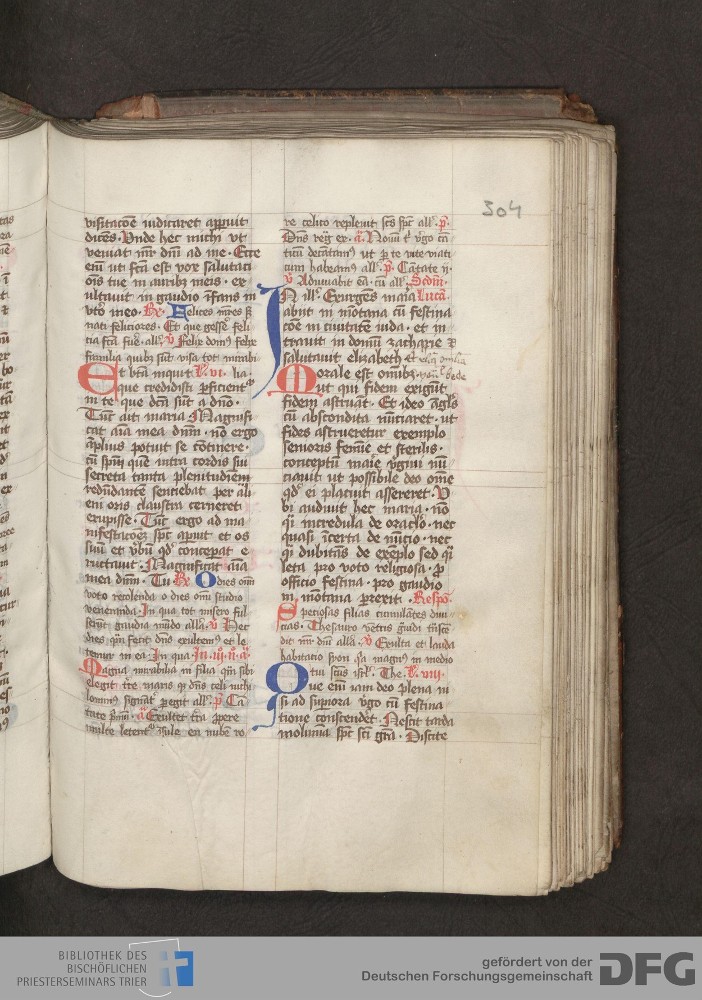 304
visitacōe iudicaret apperuit
dicēs. Vnde hec michi vt
veniat mr̄ dn̄i ad me. Ecce
em̄ ut fcā est vox salutaci
onis tue in aurib9 meis. ex
ultauit in gaudio īfans in
vtō meo. Rx. Felices mr̄es
nati feliciores. Et que gesseˢ feli
familia quib9 sūt visa tot mirabi
Et btā̄ inquit. L. vi. lia.
que credidisti pficient
in te que dcā sūt a dn̄o.
Tūc ait maria Magnifi
cat aīa mea dnm̄. nō ergo
āplius potuit se cōtinere.
cū spm̄ quē intra cordis sui
secreta tanta plenitudiem̄
redūdantē senciebat per ali
em oris claustra cerneret
erupisse. Tūc ergo ad ma
nifestacōez spc̄ aperuit et os
suū et v̄bū qd̓ conceperat e
ructauit. Magnificat aīa
mea dnm̄. Tu Rx O dies om̄i
voto recolenda o dies om̄i studio
veneranda. In qua tot misero ful
serūt gaudia mūdo allā. v̓ Hec
dies quā fecit dn̄s exultem9 et le
temur in ea In qua. In. iij. n̄. a̓.
Magna mirabilia in filia quā sibi
elegit rex
tate a̓. Exultet tr̄a apere
re celico repleuit scs̄ spc̄ all̓. p̓.
Dn̄s reg̓ ex. a̓. Nouū v̓go cā
ticū decātam9 ut p te vite viati
cum habeam9 all̓. p̓. Cātate ij.
v̓ Adiuuabit eā. cū all̓. Scdm̄.
In ill̓. Exurgēs maria Lucā.
abijt in mōtana cū festina
cōe in ciuitatē iuda. et in
trauit in domū zacharie &
salutauit elizabeth Et reliq̓ omelia
Morale est omib9. ven̄ bede
ut qui fidem exigūt
fidem astruāt. Et ideo āgl̄s
cū abscondita nūciaret. ut
fides astrueretur exemplo
senioris femīe et sterilis.
conceptū marie v̓gini nū
ciauit ut possibile deo om̄e
qd̓ ei placuit assereret. V
bi audiuit hec maria. nō
q̓i incredula de oraclo. nec
quasi īcerta de nūcio. nec
q̓i dubitās de exēplo sed q̓i
leta pro voto religiosa. p̄
officio festina. pro gaudio
in mōtana prexit. Respō.
Speciosas filias cumulātes diui
cias. Thesauro
dit mr̄ dn̄i allā. v̓ Exulta et lauda
habitacio syon q̓a magn9 in medio
tui scūs isrl̄. The. L. viij.
Que em̄ iam deo plena ni
si ad supiora v̓go cū festina
tione conscendet. Nescit tarda
molimīa spc̄ sc̄i grā. Discite
BIBLIOTHEK DES
BISCHÖFLICHEN
PRIESTERSEMINARS TRIER
gefördert von der
Deutschen Forschungsgemeinschaft
DFG